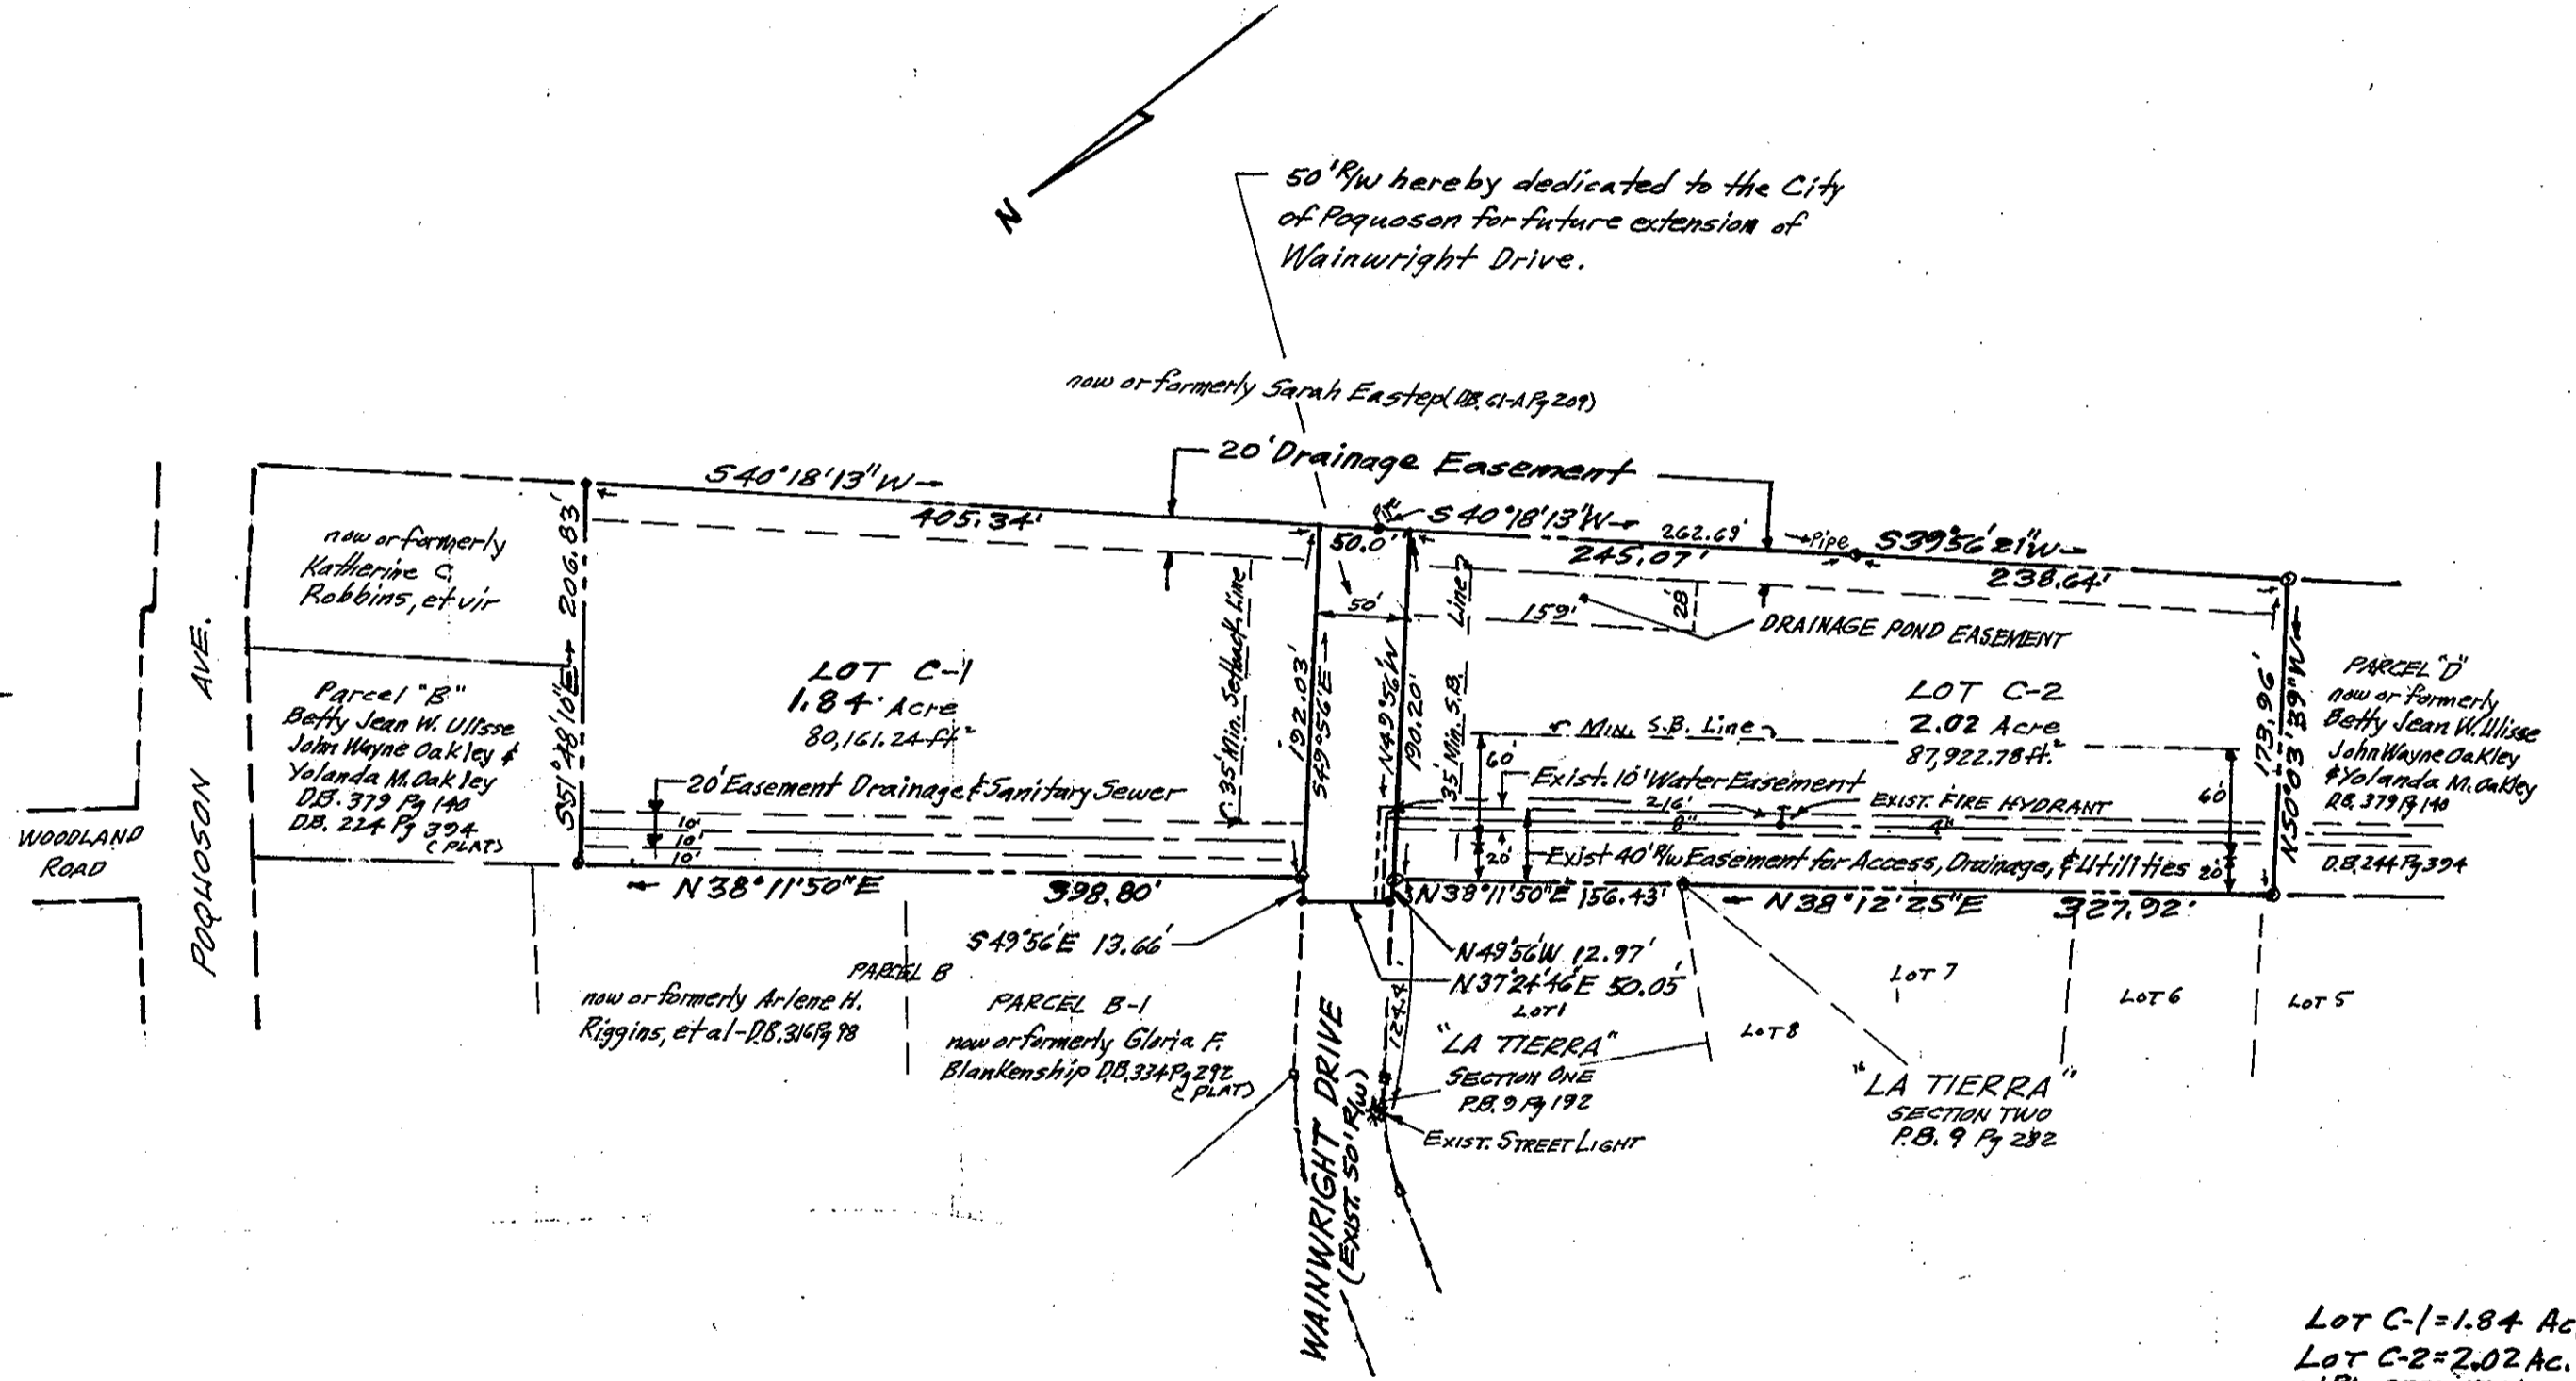 N
50' R/W hereby dedicated to the City
of Poquoson for future extension of
Wainwright Drive.
now or formerly Sarah Eastep (DB. 61-A Pg 209)
20' Drainage Easement
S40°18'13"W
405.34'
50.0'
S40°18'13"W
262.69'
245.07'
Pipe
S39°56'21"W
238.64'
now or formerly
Katherine C.
Robbins, et vir
S51°48'10"E 206.83'
Parcel "B"
Betty Jean W. Ulisse
John Wayne Oakley &
Yolanda M. Oakley
D.B. 379 Pg 140
DB. 224 Pg 394
(PLAT)
POQUOSON AVE.
WOODLAND
ROAD
LOT C-1
1.84 Acre
80,161.24 ft²
35' Min. Setback Line
20' Easement Drainage & Sanitary Sewer
10'
10'
10'
192.03'
S49°56'E
50'
N49°56'W
190.20'
35' Min. S.B. Line
159'
28'
DRAINAGE POND EASEMENT
LOT C-2
2.02 Acre
87,922.78 ft.²
MIN. S.B. Line
60'
60'
Exist. 10' Water Easement
216'
8"
4"
EXIST. FIRE HYDRANT
20'
Exist 40' R/W Easement for Access, Drainage, & Utilities
20'
173.96'
N50°03'39"W
PARCEL "D"
now or formerly
Betty Jean W. Ulisse
John Wayne Oakley
& Yolanda M. Oakley
DB. 379 Pg 140
D.B. 244 Pg 394
N38°11'50"E 398.80'
N38°11'50"E 156.43'
N38°12'25"E 327.92'
S49°56'E 13.66'
N49°56'W 12.97'
N37°24'46"E 50.05'
PARCEL B
now or formerly Arlene H.
Riggins, et al - D.B. 316 Pg 98
PARCEL B-1
now or formerly Gloria F.
Blankenship D.B. 334 Pg 292
(PLAT)
WAINWRIGHT DRIVE
(EXIST. 50' R/W)
124.4'
LOT 1
"LA TIERRA"
SECTION ONE
P.B. 9 Pg 192
EXIST. STREET LIGHT
LOT 8
LOT 7
LOT 6
LOT 5
"LA TIERRA"
SECTION TWO
P.B. 9 Pg 282
LOT C-1=1.84 Ac.
LOT C-2=2.02 Ac.